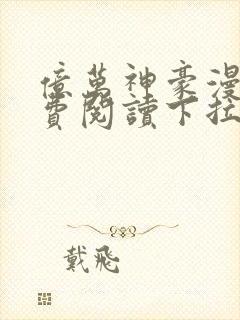 億萬神豪漫
費閱讀下拉
戴飛